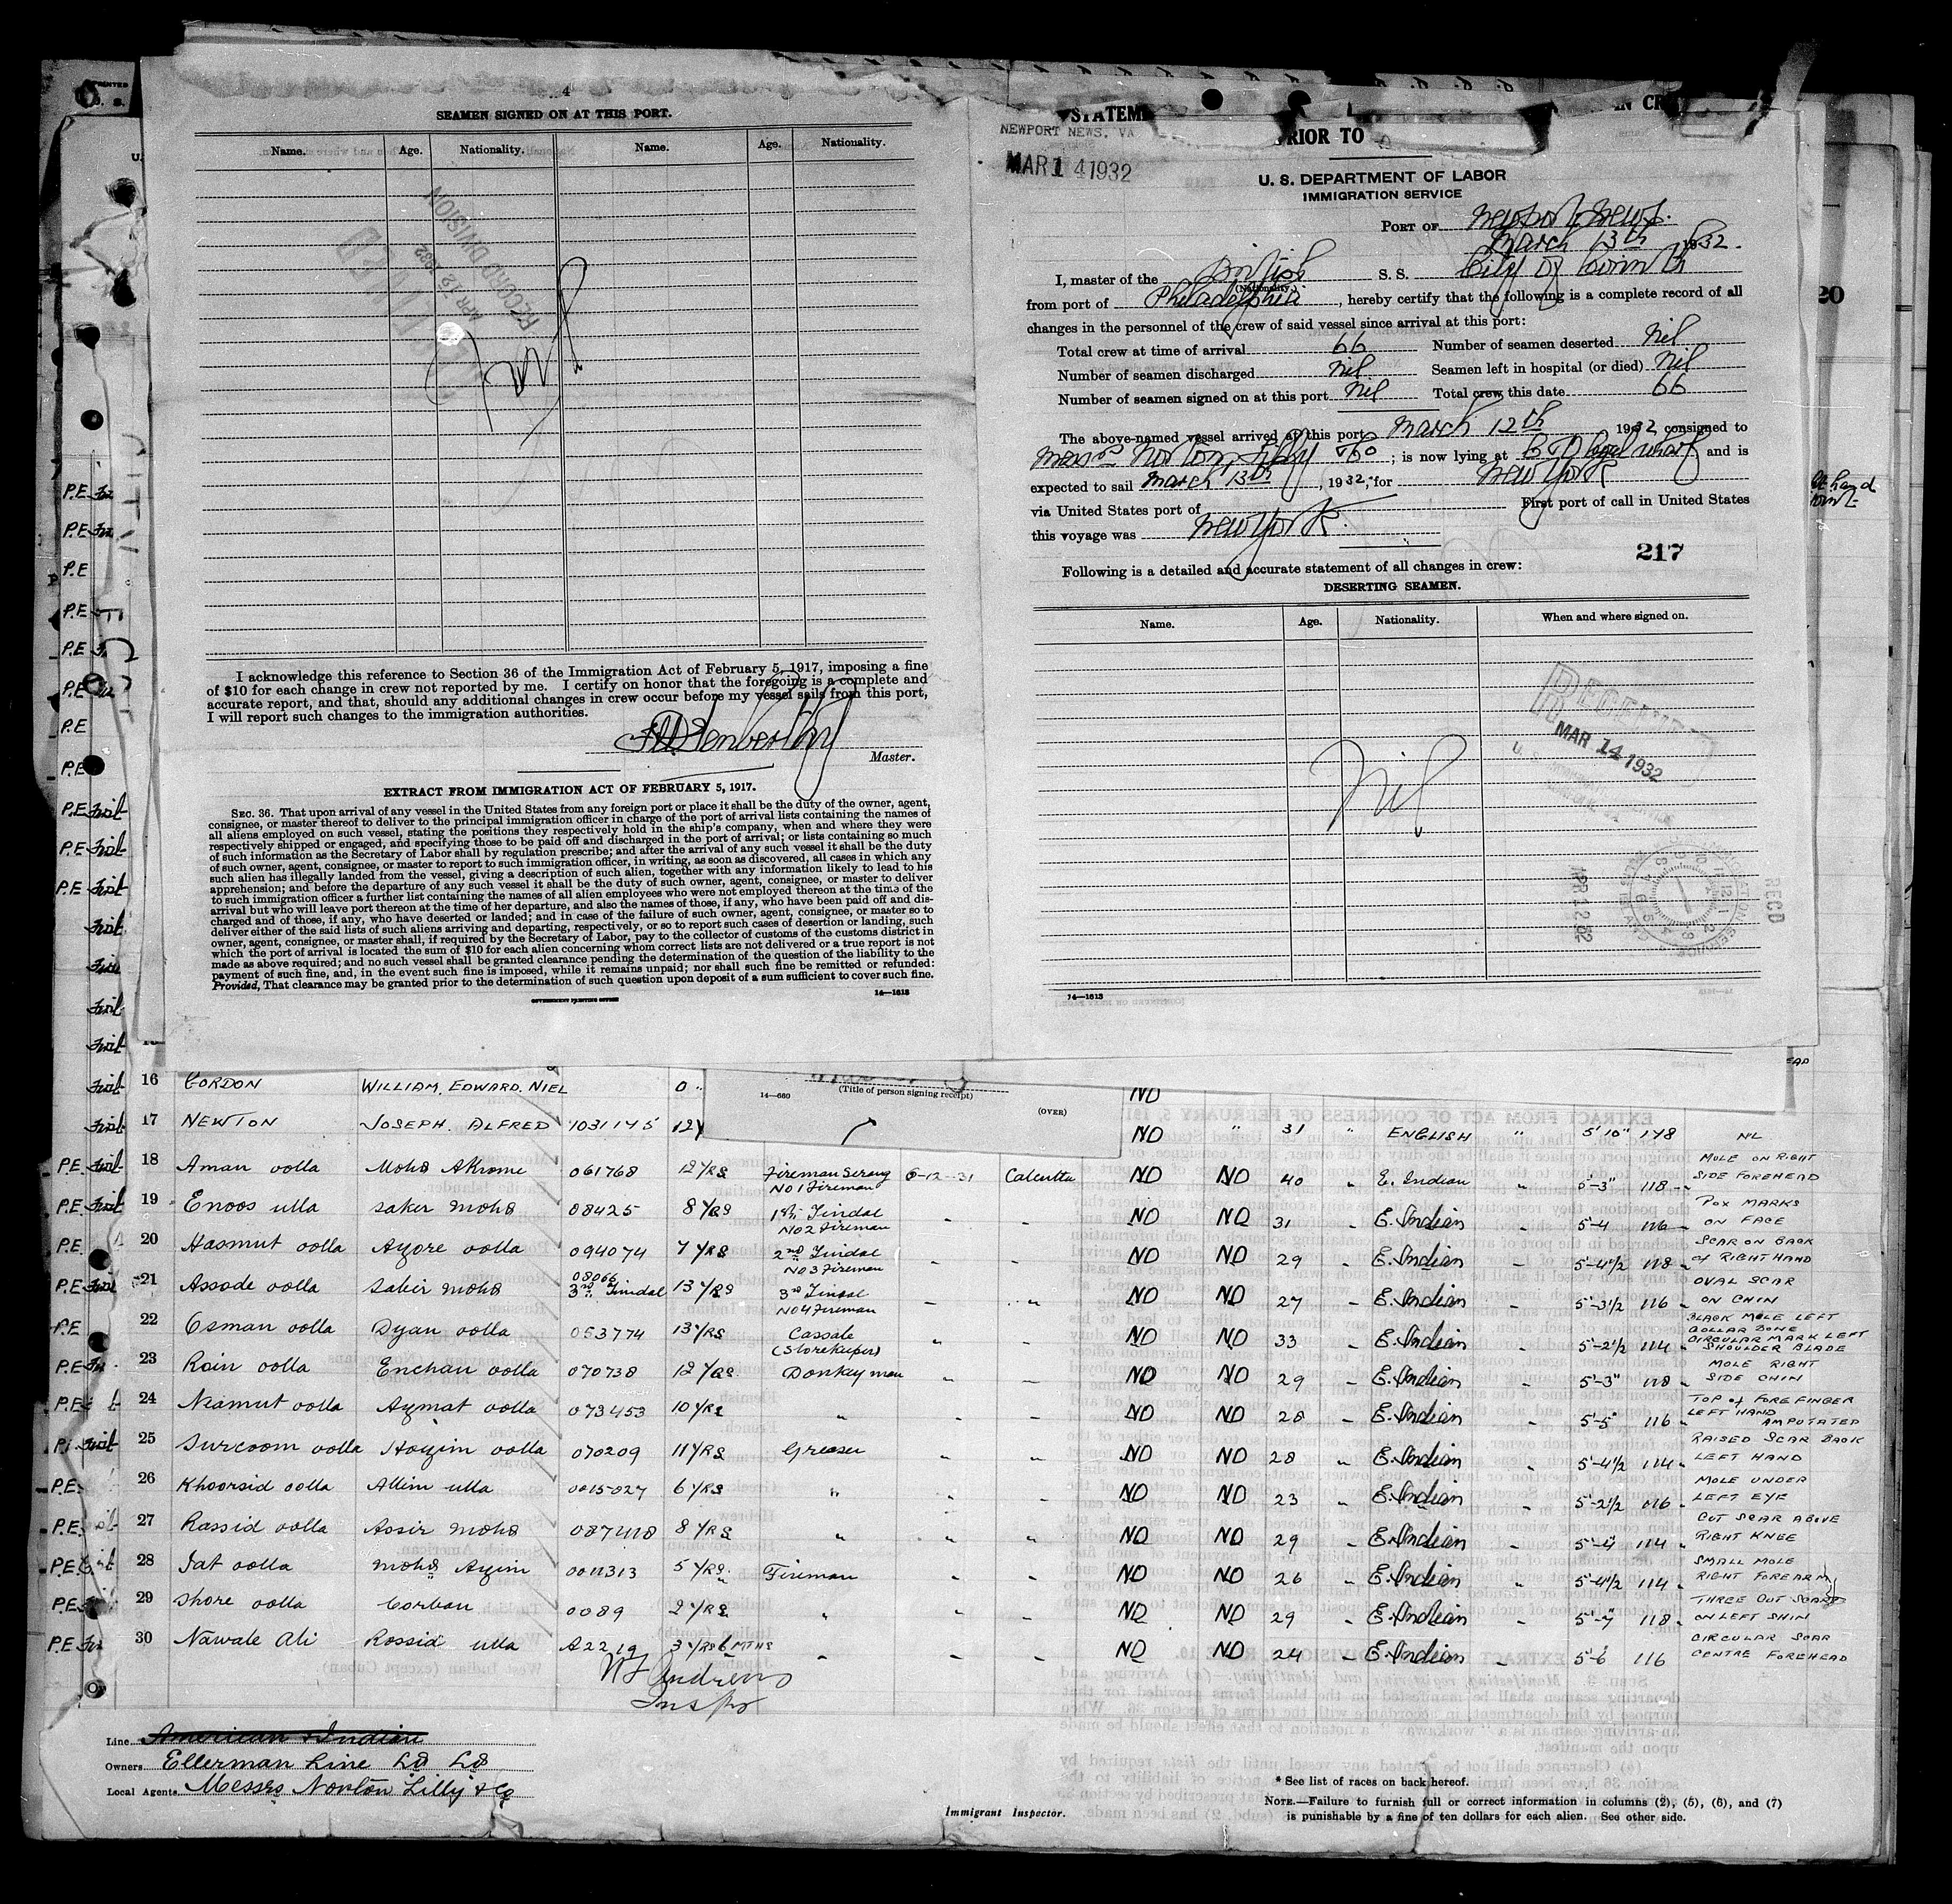 4
SEAMEN SIGNED ON AT THIS PORT.
Name. Age. Nationality. Name. Age. Nationality.
RECORD DIVISION
APR 12 1932
Nil
I acknowledge this reference to Section 36 of the Immigration Act of February 5, 1917, imposing a fine
of $10 for each change in crew not reported by me. I certify on honor that the foregoing is a complete and
accurate report, and that, should any additional changes in crew occur before my vessel sails from this port,
I will report such changes to the immigration authorities.
Master.
EXTRACT FROM IMMIGRATION ACT OF FEBRUARY 5, 1917.
SEC. 36. That upon arrival of any vessel in the United States from any foreign port or place it shall be the duty of the owner, agent,
consignee, or master thereof to deliver to the principal immigration officer in charge of the port of arrival lists containing the names of
all aliens employed on such vessel, stating the positions they respectively hold in the ship's company, when and where they were
respectively shipped or engaged, and specifying those to be paid off and discharged in the port of arrival; or lists containing so much
of such information as the Secretary of Labor shall by regulation prescribe; and after the arrival of any such vessel it shall be the duty
of such owner, agent, consignee, or master to report to such immigration officer, in writing, as soon as discovered, all cases in which any
such alien has illegally landed from the vessel, giving a description of such alien, together with any information likely to lead to his
apprehension; and before the departure of any such vessel it shall be the duty of such owner, agent, consignee, or master to deliver
to such immigration officer a further list containing the names of all alien employees who were not employed thereon at the time of the
arrival but who will leave port thereon at the time of her departure, and also the names of those, if any, who have been paid off and dis-
charged and of those, if any, who have deserted or landed; and in case of the failure of such owner, agent, consignee, or master so to
deliver either of the said lists of such aliens arriving and departing, respectively, or so to report such cases of desertion or landing, such
owner, agent, consignee, or master shall, if required by the Secretary of Labor, pay to the collector of customs of the customs district in
which the port of arrival is located the sum of $10 for each alien concerning whom correct lists are not delivered or a true report is not
made as above required; and no such vessel shall be granted clearance pending the determination of the question of the liability to the
payment of such fine, and, in the event such fine is imposed, while it remains unpaid; nor shall such fine be remitted or refunded:
Provided, That clearance may be granted prior to the determination of such question upon deposit of a sum sufficient to cover such fine.
GOVERNMENT PRINTING OFFICE 14—1613
STATEME IN CRE
NEWPORT NEWS, VA
PRIOR TO
MAR 14 1932
U. S. DEPARTMENT OF LABOR
IMMIGRATION SERVICE
PORT OF Newport News.
March 13th 1932.
I, master of the British S. S. City of Corinth
(Nationality.)
from port of Philadelphia, hereby certify that the following is a complete record of all
changes in the personnel of the crew of said vessel since arrival at this port:
Total crew at time of arrival 66 Number of seamen deserted Nil
Number of seamen discharged Nil Seamen left in hospital (or died) Nil
Number of seamen signed on at this port Nil Total crew this date 66
The above-named vessel arrived at this port March 12th 1932 consigned to
Messrs Norton Lilly & Co; is now lying at wharf and is
expected to sail March 13th, 1932, for New York
via United States port of First port of call in United States
this voyage was New York.
217
Following is a detailed and accurate statement of all changes in crew:
DESERTING SEAMEN.
Name. Age. Nationality. When and where signed on.
RECEIVED
MAR 14 1932
Nil
RECD
APR 12
14—1613
20
16 GORDON WILLIAM, EDWARD, NIEL NO
14—660 (Title of person signing receipt) (OVER)
17 NEWTON JOSEPH. ALFRED 1031145 12Y NO " 31 " ENGLISH " 5'10" 178 NIL
18 Aman oolla Mohd Akrome 061768 12 YRS Fireman Serang No 1 Fireman 6-12-31 Calcutta NO NO 40 " E. Indian " 5'-3" 118 MOLE ON RIGHT SIDE FOREHEAD
19 Enoos ulla Saker Mohd 08425 8 YRS 1st Tindal No 2 Fireman " " NO NO 31 " E. Indian " 5'-4 116 POX MARKS ON FACE
20 Hasmut oolla Ayore oolla 094074 7 YRS 2nd Tindal No 3 Fireman " " NO NO 29 " E. Indian " 5'-4½ 118 SCAR ON BACK OF RIGHT HAND
21 Assode oolla Sabir Mohd 08066 3rd Tindal 13 YRS 3rd Tindal No 4 Fireman " " NO NO 27 " E. Indian " 5'-3½ 116 OVAL SCAR ON CHIN
22 Osman oolla Dyan oolla 053774 13 YRS Cassab (Storekeeper) " " NO NO 33 " E. Indian " 5'-2½ 114 BLACK MOLE LEFT COLLAR BONE CIRCULAR MARK LEFT SHOULDER BLADE
23 Roin oolla Enchan oolla 070738 12 YRS Donkeyman " " NO NO 29 " E. Indian " 5'-3" 118 MOLE RIGHT SIDE CHIN
24 Neamut oolla Aymat oolla 073453 10 YRS " " " NO NO 28 " E. Indian " 5'-5" 116 TOP OF FORE FINGER LEFT HAND AMPUTATED
25 Surcoom oolla Hoyim oolla 070209 11 YRS Greaser " " NO NO 28 " E. Indian " 5'-4½ 114 RAISED SCAR BACK LEFT HAND
26 Khoorsid oolla Allim ulla 0015027 6 YRS " " " NO NO 23 " E. Indian " 5'-2½ 116 MOLE UNDER LEFT EYE
27 Rassid oolla Assir Mohd 087418 8 YRS " " " NO NO 29 " E. Indian " 5'-4" 114 CUT SCAR ABOVE RIGHT KNEE
28 Jat oolla Mohd Azim 0011313 5 YRS. Fireman " " NO NO 26 " E. Indian " 5'-4½ 114 SMALL MOLE RIGHT FOREARM
29 Shore oolla Corban 0089 2 YRS " " " NO NO 29 " E. Indian " 5'-7" 118 THREE CUT SCARS ON LEFT SHIN
30 Nawab Ali Rossid ulla A2219 3 YRS 6 MTHS " " " NO NO 24 " E. Indian " 5'-6 116 CIRCULAR SCAR CENTRE FOREHEAD
Andrews
Inspr
Line American & Indian
Owners Ellerman Line Ld Ld
Local Agents Messrs Norton Lilly & Co
Immigrant Inspector.
* See list of races on back hereof.
NOTE.—Failure to furnish full or correct information in columns (2), (5), (6), and (7)
is punishable by a fine of ten dollars for each alien. See other side.